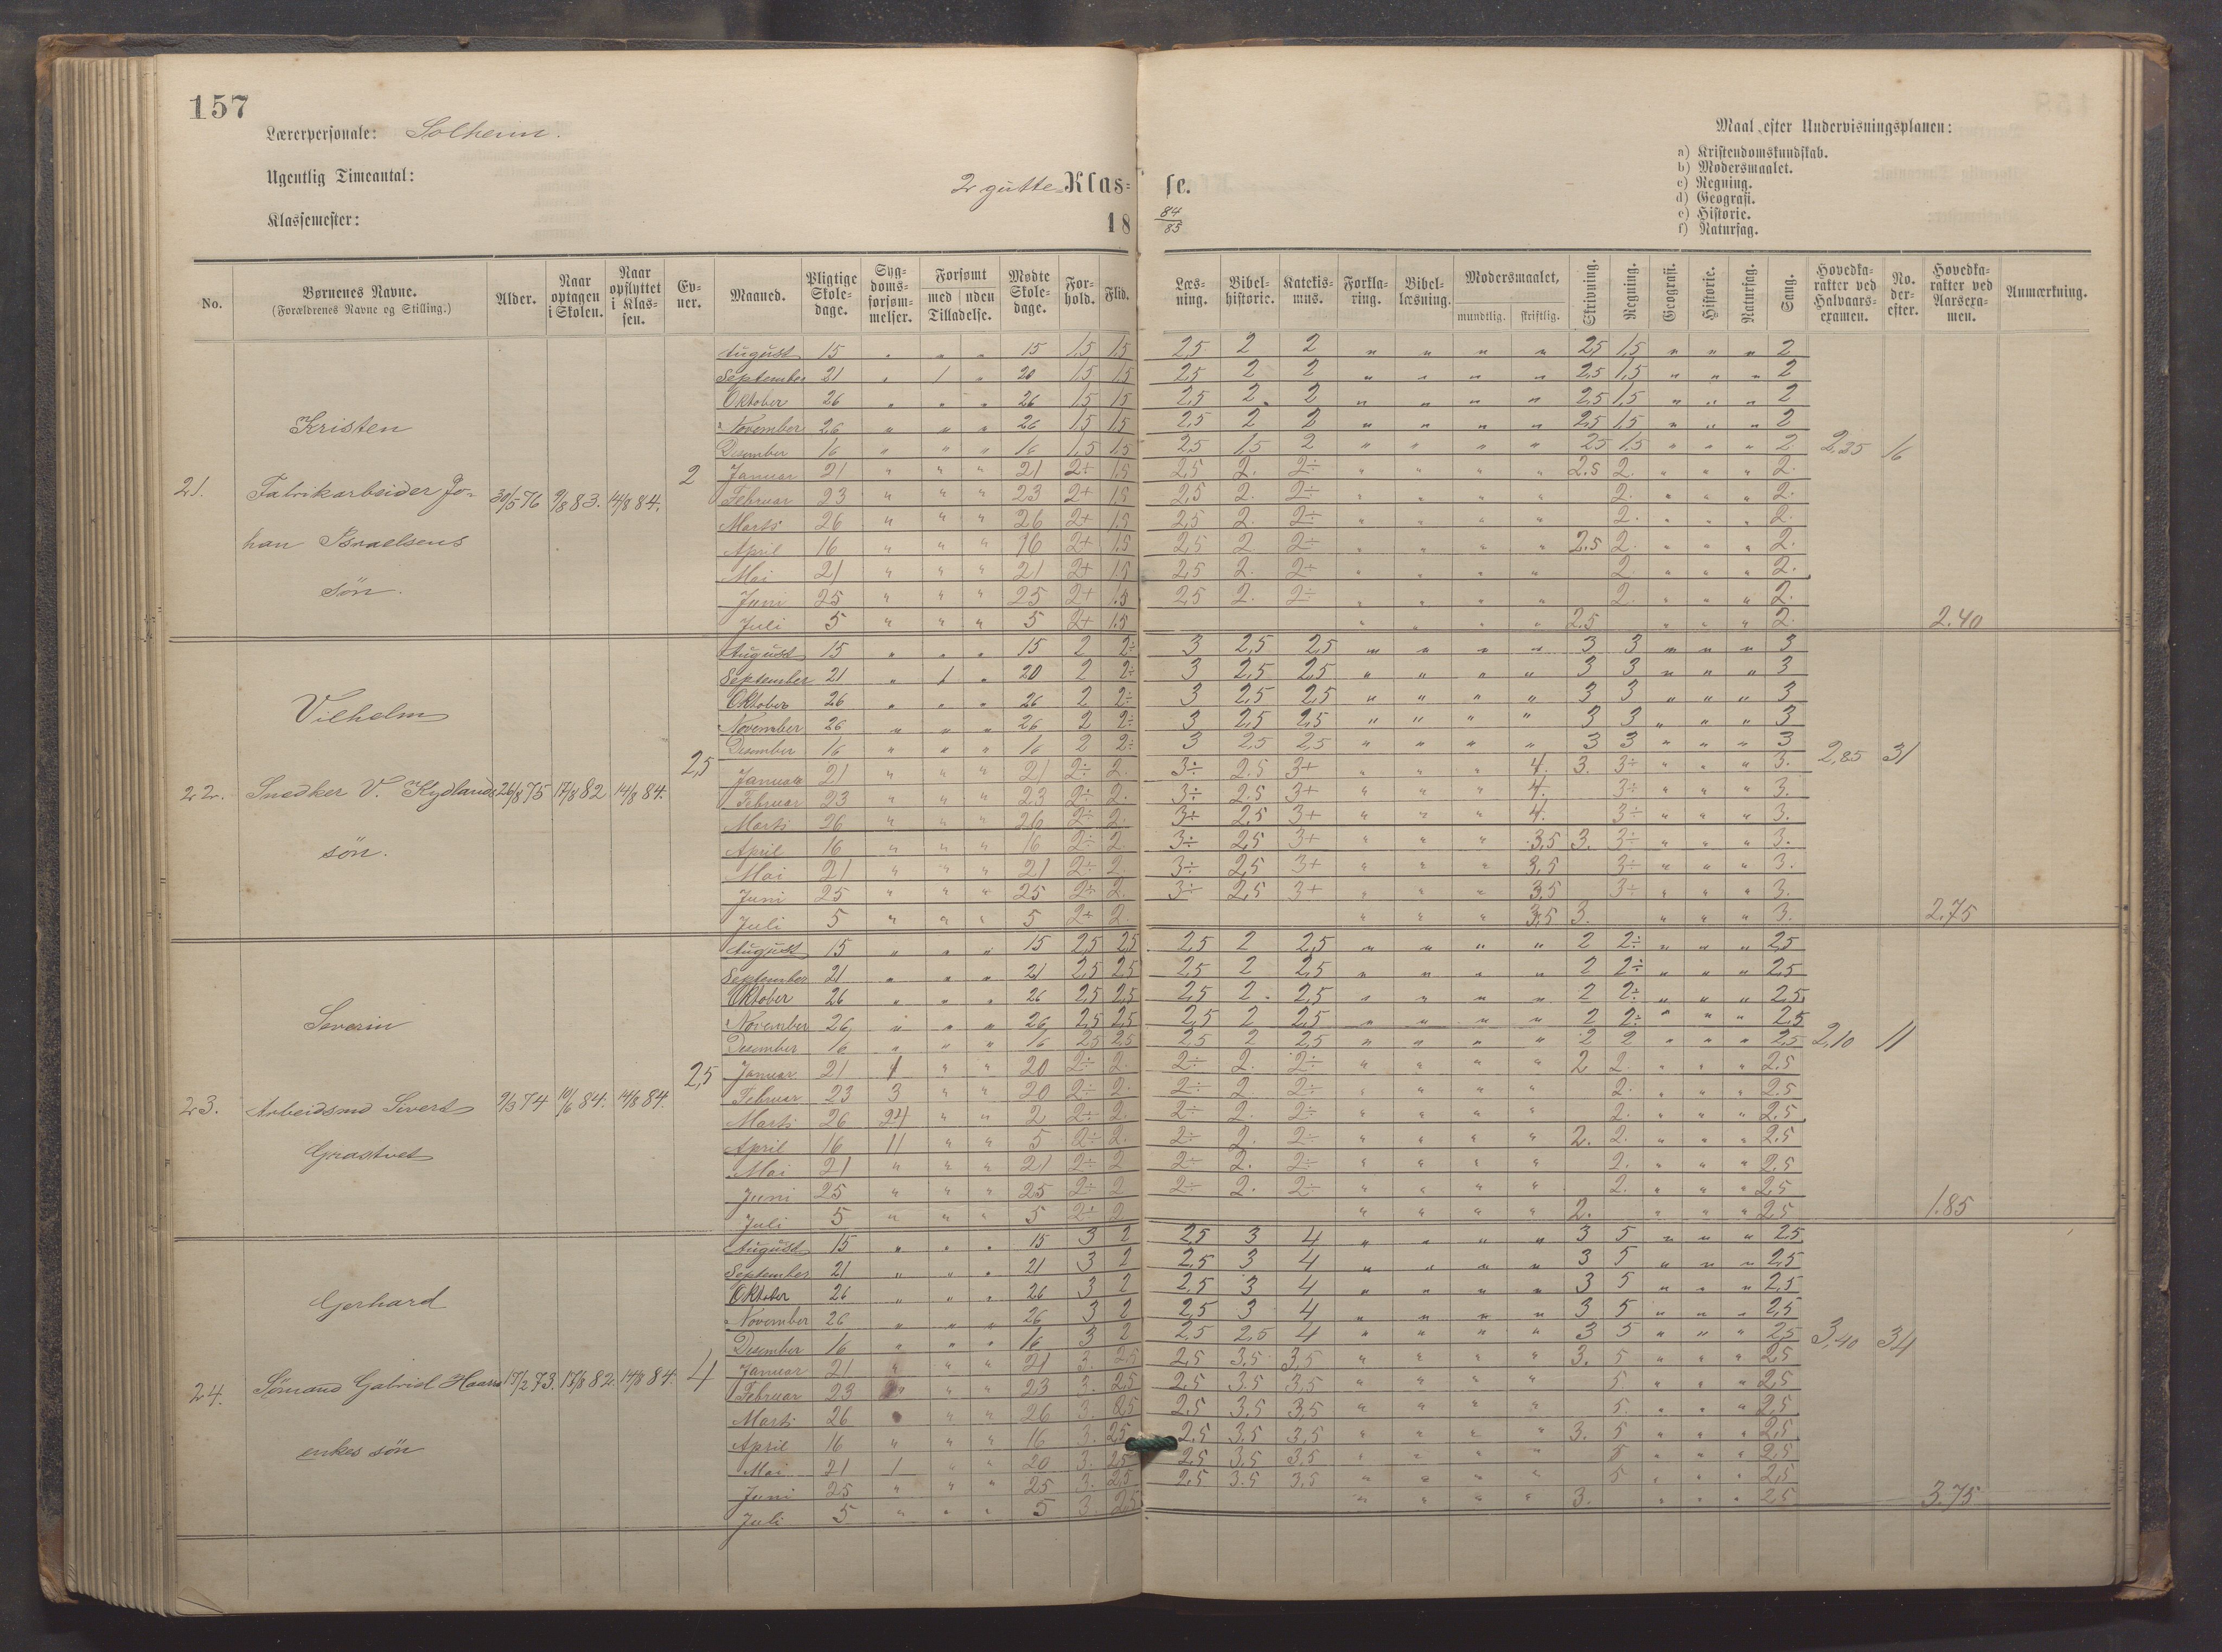 157
Lærerpersonale: Solheim.
Ugentlig Timeantal:
Klassemester:
2 gutte- Klas- se.
18 84/85
Maal efter Undervisningsplanen:
a) Kristendomskundskab.
b) Modersmaalet.
c) Regning.
d) Geografi.
e) Historie.
f) Naturfag.
No. Børnenes Navne. (Forældrenes Navne og Stilling.) Alder. Naar optagen i Skolen. Naar opflyttet i Klassen. Evner. Maaned. Pligtige Skoledage. Sygdomsforsømmelser. Forsømt med uden Tilladelse. Mødte Skoledage. Forhold. Flid. Læsning. Bibelhistorie. Katekismus. Forklaring. Bibellæsning. Modersmaalet, mundtlig. skriftlig. Skrivning. Regning. Geografi. Historie. Naturfag. Sang. Hovedkarakter ved Halvaarsexamen. No. derefter. Hovedkarakter ved Aarsexamen. Anmærkning.
21. Kristen Fabrikarbeider Johan Israelsens søn. 30/5 76 9/8 83. 14/8 84. 2
August 15 " " " 15 1,5 1,5 2,5 2 2 " " " " 2,5 1,5 " " " 2
September 21 " 1 " 20 1,5 1,5 2,5 2 2 " " " " 2,5 1,5 " " " 2
Oktober 26 " " " 26 1,5 1,5 2,5 2 2 " " " " 2,5 1,5 " " " 2
November 26 " " " 26 1,5 1,5 2,5 2 2 " " " " 2,5 1,5 " " " 2
Desember 16 " " " 16 1,5 1,5 2,5 1,5 2 " " " " 2,5 1,5 " " " 2 2,35 16
Januar 21 " " " 21 2+ 1.5 2,5 2. 2÷ " " " " 2.5 2. " " " 2.
Februar 23 " " " 23 2+ 1.5 2,5 2. 2÷ " " " " 2. " " " 2.
Marts 26 " " " 26 2+ 1.5 2,5 2. 2÷ " " " " 2. " " " 2.
April 16 " " " 16 2+ 1.5 2,5 2 2÷ " " " " 2.5 2. " " " 2.
Mai 21 " " " 21 2+ 1.5 2,5 2. 2÷ " " " " 2. " " " 2.
Juni 25 " " " 25 2+ 1.5 2,5 2. 2÷ " " " " 2. " " " 2.
Juli 5 " " " 5 2+ 1.5 " " " " 2.5 " " " 2. 2.40
22. Vilhelm Snedker V. Kydlands søn. 26/8 75 17/8 82 14/8 84. 2,5
August 15 " " " 15 2 2÷ 3 2,5 2,5 " " " " 3 3 " " " 3
September 21 " 1 " 20 2 2÷ 3 2,5 2,5 " " " " 3 3 " " " 3
Oktober 26 " " " 26 2 2÷ 3 2,5 2,5 " " " " 3 3 " " " 3
November 26 " " " 26 2 2÷ 3 2,5 2,5 " " " " 3 3 " " " 3
Desember 16 " " " 16 2 2÷ 3 2,5 2,5 " " " " 3 3 " " " 3 2,85 31
Januar 21 " " " 21 2÷ 2. 3÷ 2.5 3+ " " " 4. 3. 3÷ " " " 3.
Februar 23 " " " 23 2÷ 2. 3÷ 2.5 3+ " " " 4. 3÷ " " " 3.
Marts 26 " " " 26 2÷ 2. 3÷ 2.5 3+ " " " 4. 3÷ " " " 3.
April 16 " " " 16 2÷ 2 3÷ 2,5 3+ " " " 3,5 3. 3÷ " " " 3.
Mai 21 " " " 21 2÷ 2 3÷ 2,5 3+ " " " 3,5 3÷ " " " 3.
Juni 25 " " " 25 2÷ 2. 3÷ 2,5 3+ " " " 3,5 3÷ " " " 3.
Juli 5 " " " 5 2÷ 2. " " " 3,5 3. " " " 3. 2.75
23. Severin Arbeidsmd Sivert Grastvet 9/3 74 10/6 84. 14/8 84. 2,5
August 15 " " " 15 2,5 2,5 2,5 2 2,5 " " " " 2 2÷ " " " 2,5
September 21 " " " 21 2,5 2,5 2,5 2 2,5 " " " " 2 2÷ " " " 2,5
Oktober 26 " " " 26 2,5 2,5 2,5 2. 2,5 " " " " 2 2÷ " " " 2,5
November 26 " " " 26 2,5 2,5 2,5 2 2,5 " " " " 2 2÷ " " " 2,5
Desember 16 " " " 16 2,5 2,5 2,5 2 2,5 " " " " 2 2 " " " 2,5 2,10 11
Januar 21 1 " " 20 2÷ 2. 2÷ 2. 2÷ " " " " 2 2. " " " 2.5
Februar 23 3 " " 20 2÷ 2. 2÷ 2. 2÷ " " " " 2. " " " 2.5
Marts 26 24 " " 2 2÷ 2. 2÷ 2. 2÷ " " " " 2. " " " 2.5
April 16 11 " " 5 2÷ 2. 2÷ 2. 2÷ " " " " 2. 2. " " " 2.5
Mai 21 " " " 21 2÷ 2 2÷ 2. 2÷ " " " " 2. " " " 2.5
Juni 25 " " " 25 2÷ 2 2÷ 2. 2÷ " " " " 2. " " " 2,5
Juli 5 " " " 5 2÷ 2 " " " " 2. " " " 2.5 1.85
24. Gerhard Sømand Gabriel Haars enkes søn 17/2 73. 17/8 82. 14/8 84. 4
August 15 " " " 15 3 2 2,5 3 4 " " " " 3 5 " " " 2,5
September 21 " " " 21 3 2 2,5 3 4 " " " " 3 5 " " " 2,5
Oktober 26 " " " 26 3 2 2,5 3 4 " " " " 3 5 " " " 2,5
November 26 " " " 26 3 2 2,5 3 4 " " " " 3 5 " " " 2,5
Desember 16 " " " 16 3 2 2,5 2,5 4 " " " " 3 5 " " " 2,5 3,40 34
Januar 21 " " " 21 3. 2,5 2,5 3.5 3,5 " " " " 3. 5 " " " 2,5
Februar 23 " " " 23 3. 2,5 2,5 3.5 3,5 " " " " 5. " " " 2,5
Marts 26 " " 26 3. 2,5 2,5 3,5 3,5 " " " " 5. " " " 2,5
April 16 " " " 16 3. 2,5 2,5 3.5 3,5 " " " " 3. 5 " " " 2,5
Mai 21 1 " " 20 3. 2,5 2,5 3,5 3,5 " " " " 5 " " " 2,5
Juni 25 " " " 25 3. 2,5 2.5 3.5 3,5 " " " " 5 " " " 2,5
Juli 5 " " " 5 3. 2,5 " " " " 3. " " " 2.5 3.75